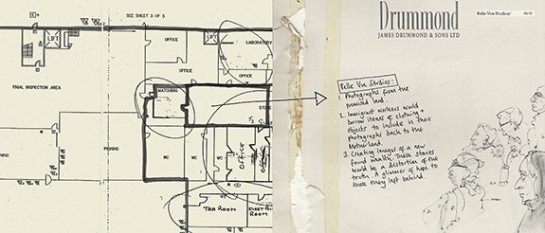 SEE SHEET 3 OF 5
LIFT
OFFICE
LIFT
LABORATORY
OFFICE
FINAL INSPECTION AREA
MATCHING
OFFICE
STORE
WC
WC
OFFICE
TEA ROOM
ROOM
Drummond
JAMES DRUMMOND & SONS LTD
Belle Vue Studios:
Photographs from the
promised land.
1. Immigrant workers would
borrow items of clothing +
objects to include in their
photographs back to the
Motherland.
2. Creating images of a new
found wealth, these stories
would be a distortion of the
truth. A glimmer of hope to
those they left behind.